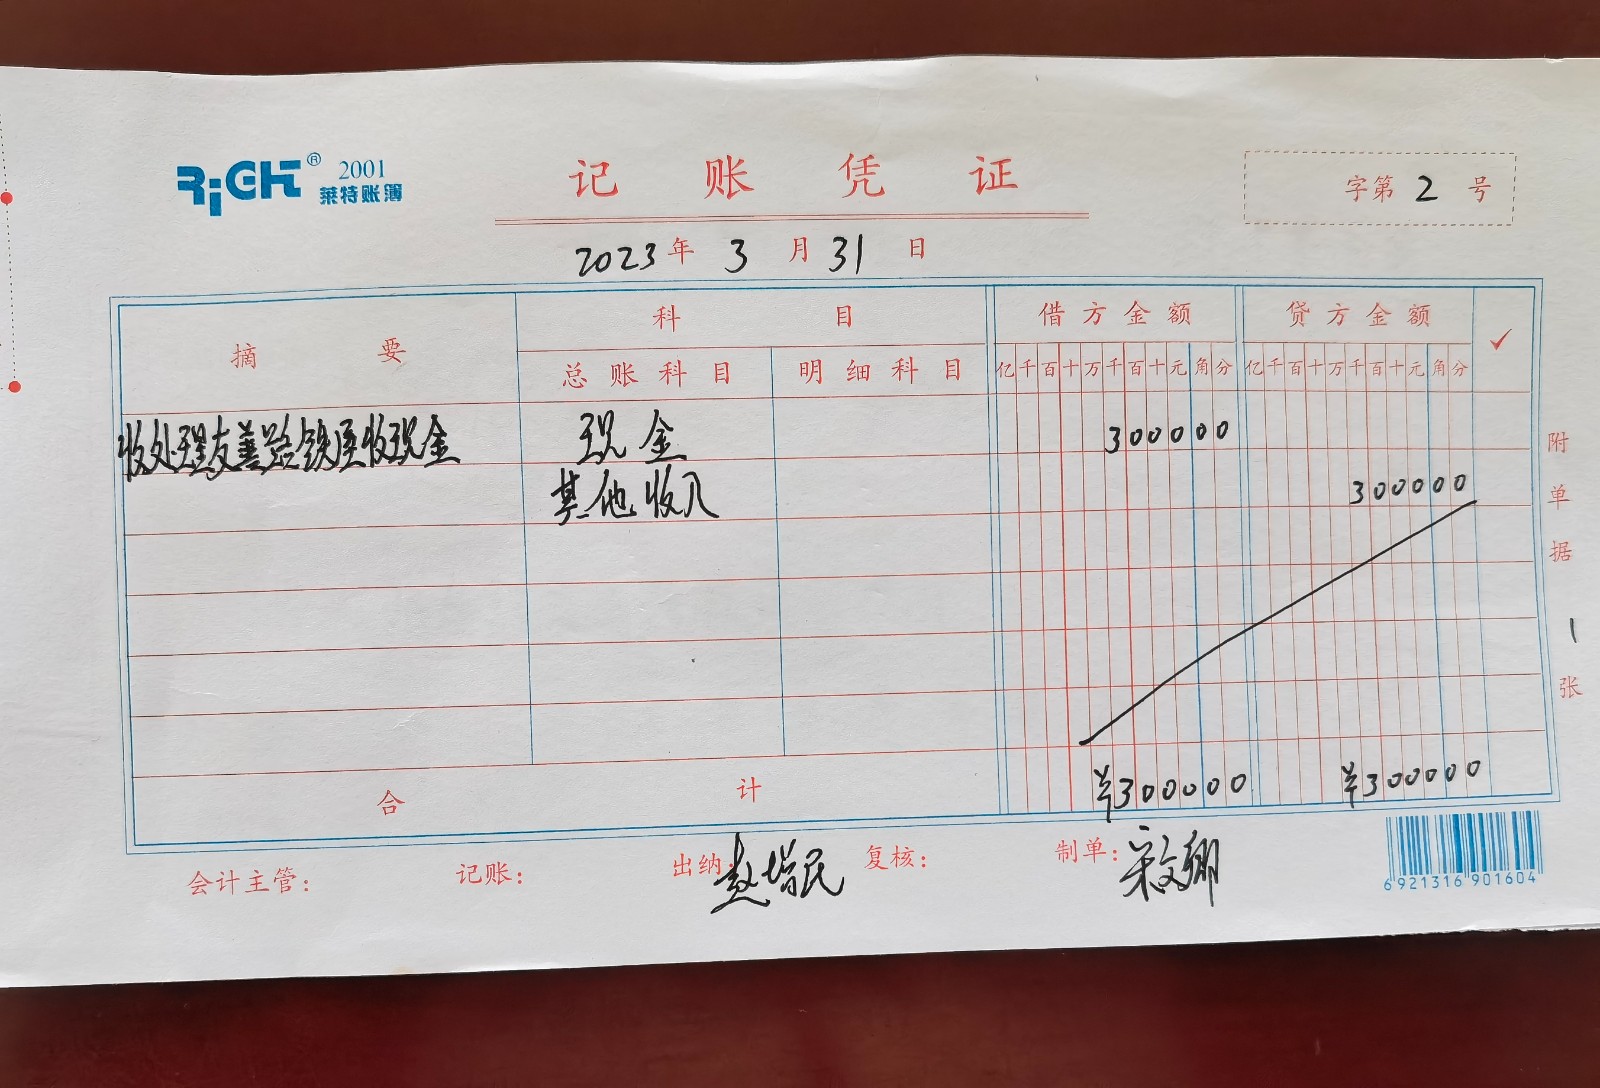 RiGHT® 2001
莱特账簿
记账凭证
字第 2 号
2023年 3月 31日
摘要
科目
借方金额
贷方金额
✓
总账科目
明细科目
亿千百十万千百十元角分
亿千百十万千百十元角分
收处理友善路铁屋收现金
现金
300000
其他收入
300000
附单据 1 张
合计
¥300000
¥300000
会计主管:
记账:
出纳: 赵增民
复核:
制单: 宋文卿
6 921316 901604